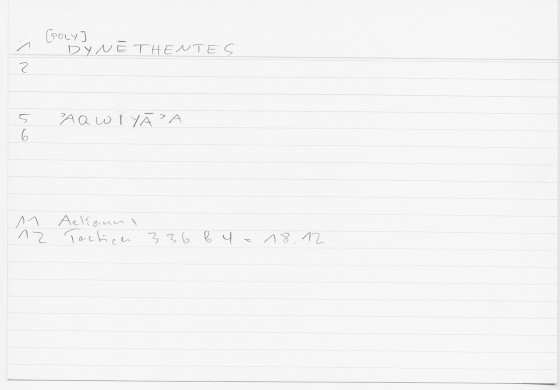 [POLY]
1 DYNĒTHENTES
2
5 ʾAQWIYĀʾA
6
11 Aelianus
12 Tactica 336 B 4 = 18.12